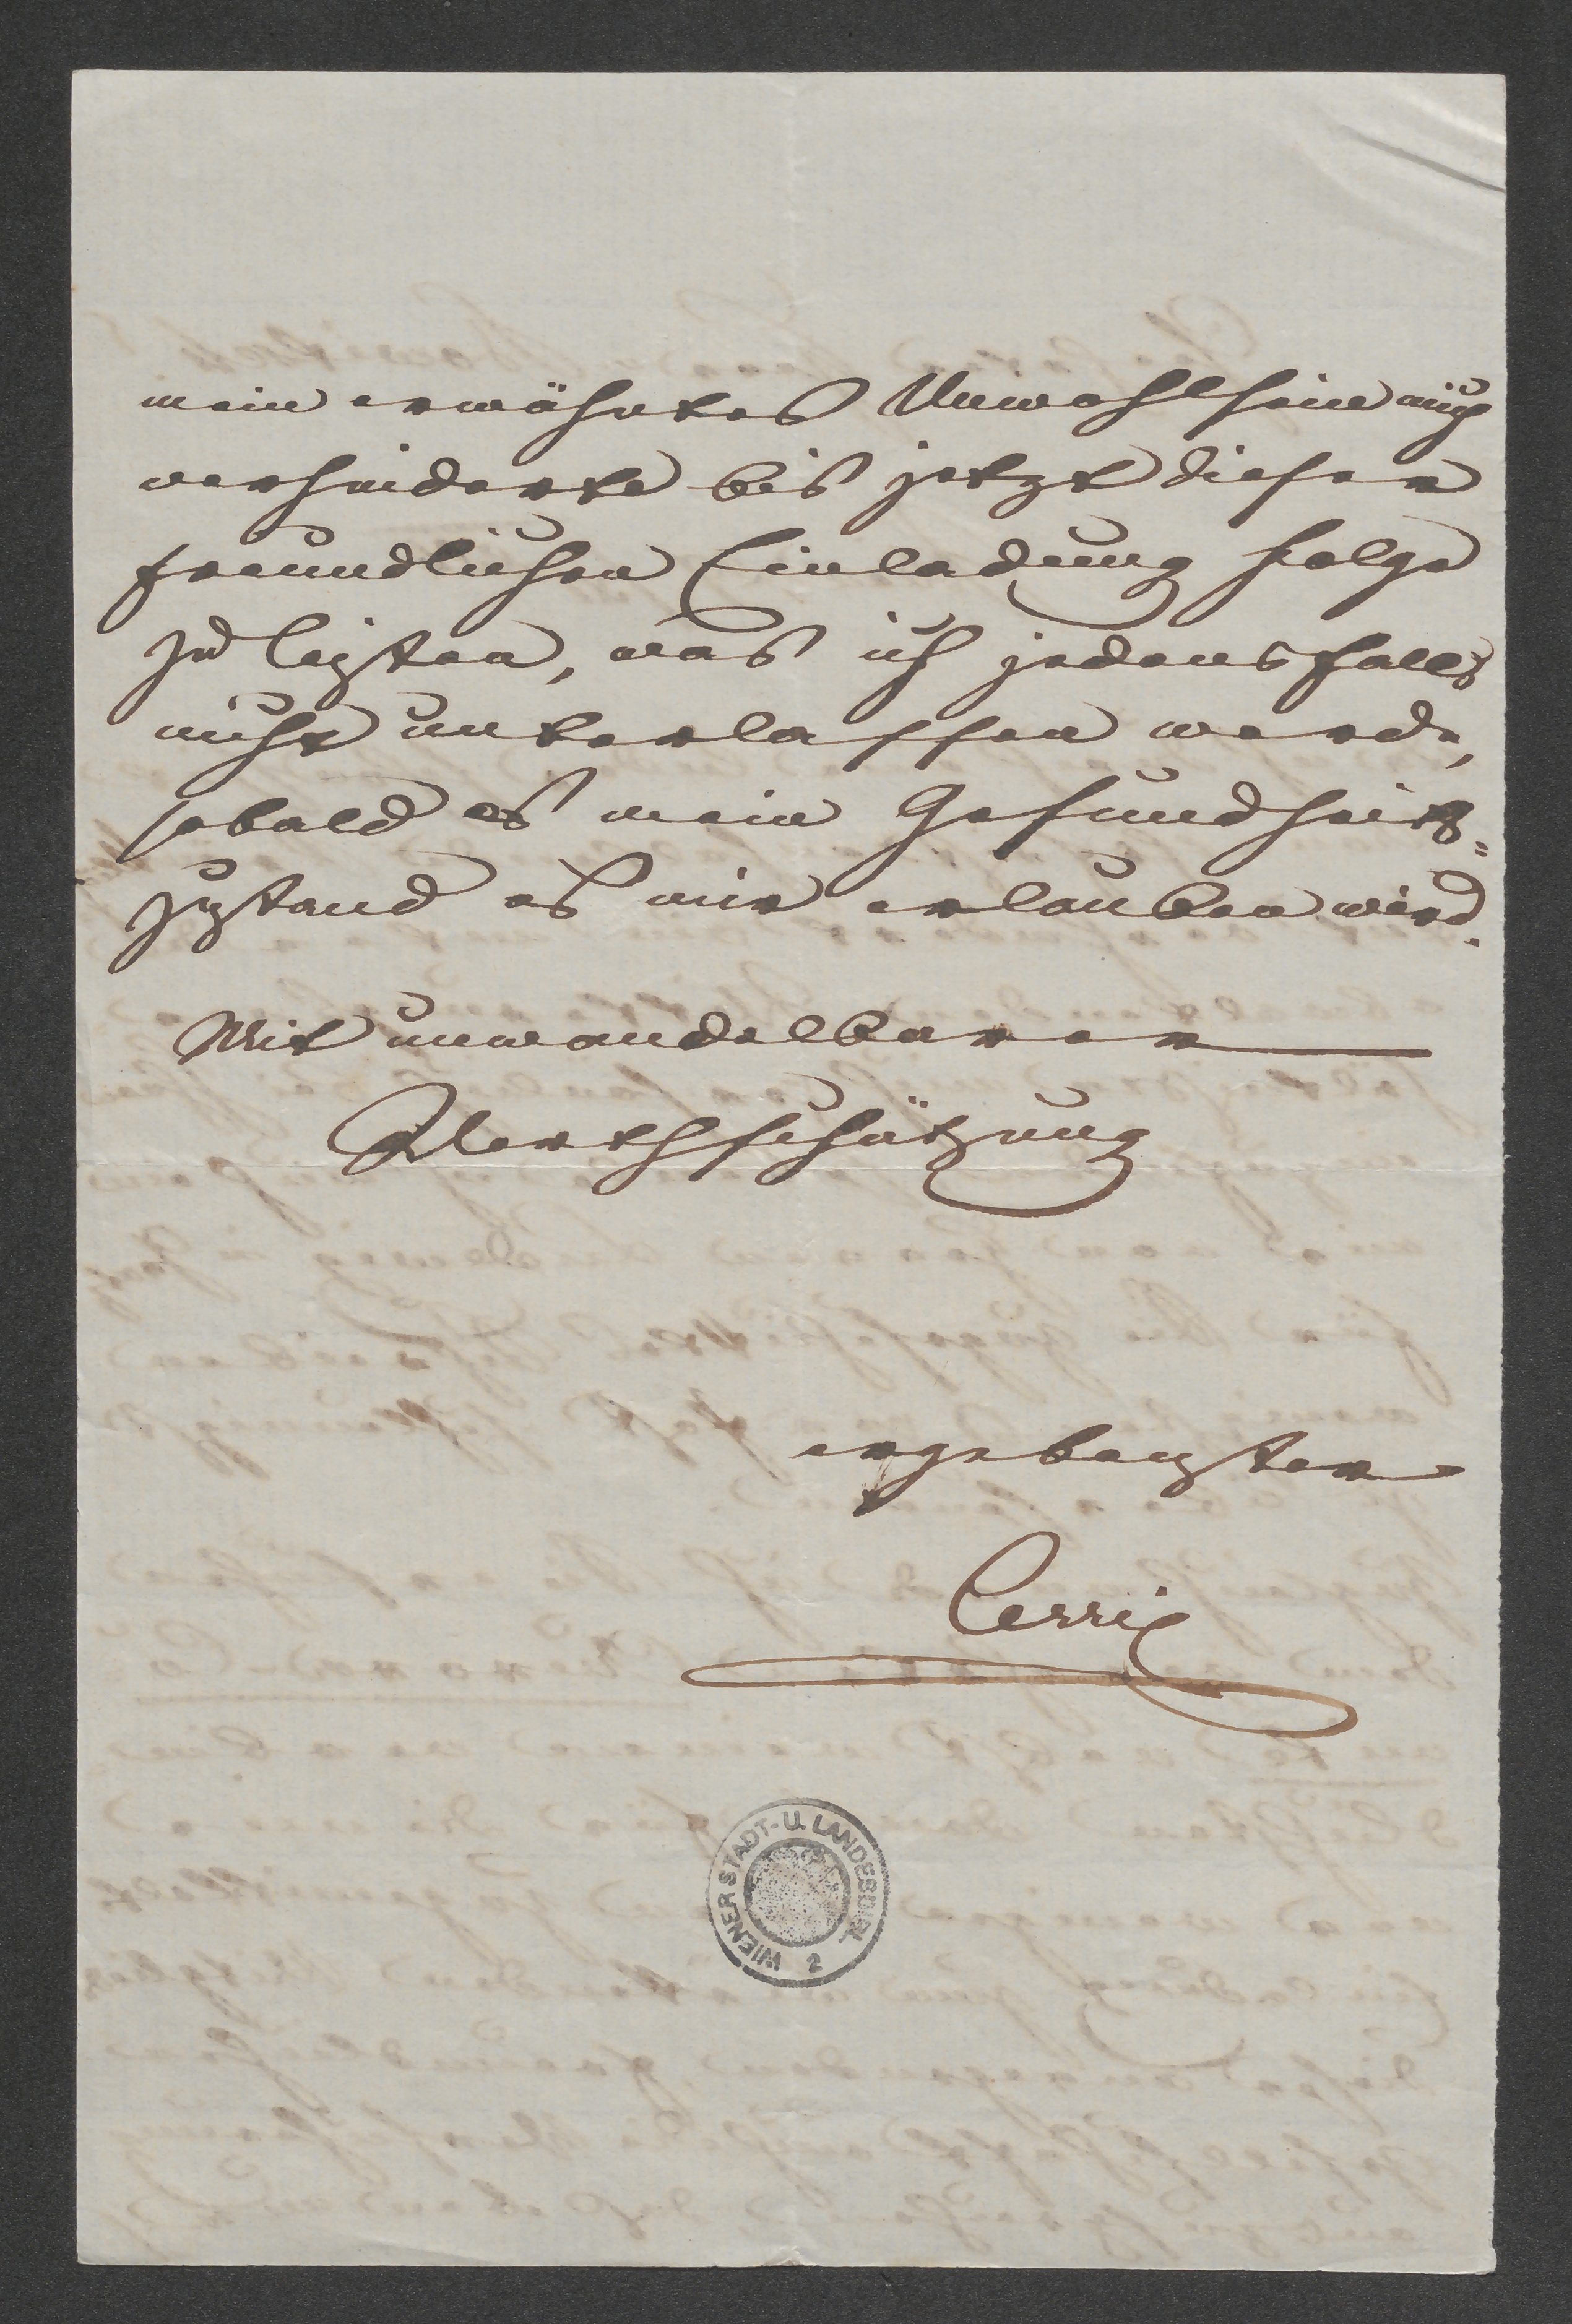 mein erwähntes Unwohlsein mich
verhinderte bis jetzt dieser
freundlichen Einladung Folge
zu leisten, was ich jedensfalls
nicht unterlassen werde,
sobald es mein Gesundheits=
zustand es mir erlauben wird.
Mit unwandelbarer
Werthschätzung
ergebenster
Cerri
WIENER STADT- U. LANDESBIBL.
2